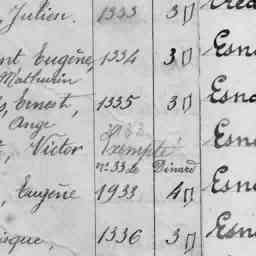 , Julien. 1333 3
nt Eugène, 1334 3 Esn
Mathurin
s, Ernest, 1335 3 Esn
Ange
, Victor Exempté Esn
n° 33 de Dinard
, Eugène 1933 4 Esn
ique, 1336 3 Esn